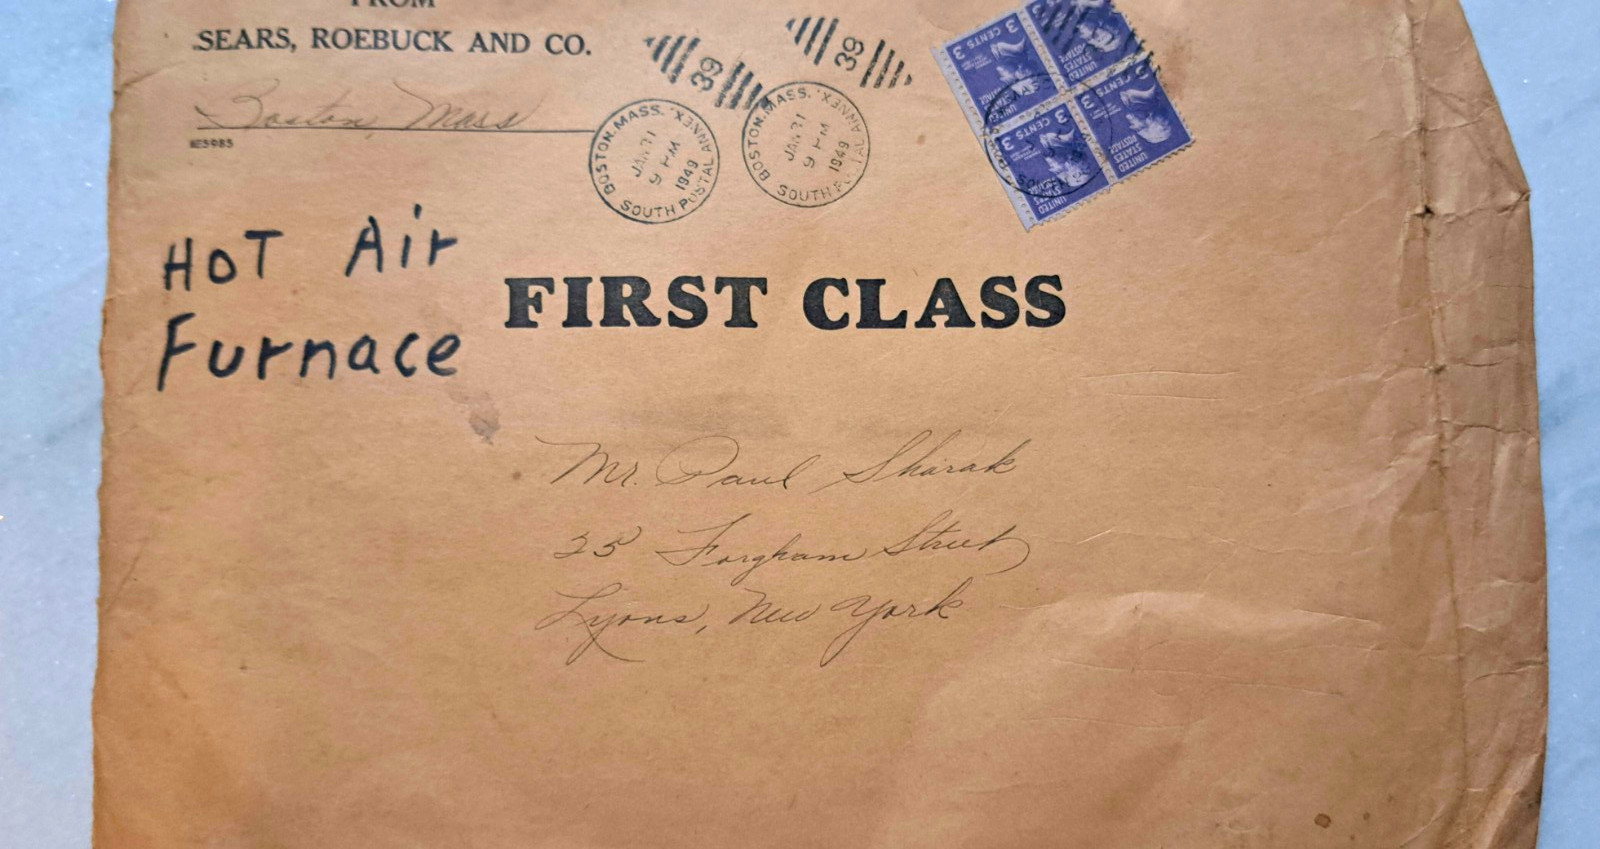 FROM
SEARS, ROEBUCK AND CO.
Boston, Mass
39
39
BOSTON, MASS. 'X' SOUTH POSTAL ANNEX
JAN 31
9 PM
1949
BOSTON, MASS. 'X' SOUTH POSTAL ANNEX
JAN 31
9 PM
1949
3 CENTS 3
UNITED STATES POSTAGE
3 CENTS 3
UNITED STATES POSTAGE
3 CENTS 3
UNITED STATES POSTAGE
3 CENTS
UNITED STATES POSTAGE
HOT Air
Furnace
FIRST CLASS
Mr. Paul Sharak
25 Forgham Street
Lyons, New York